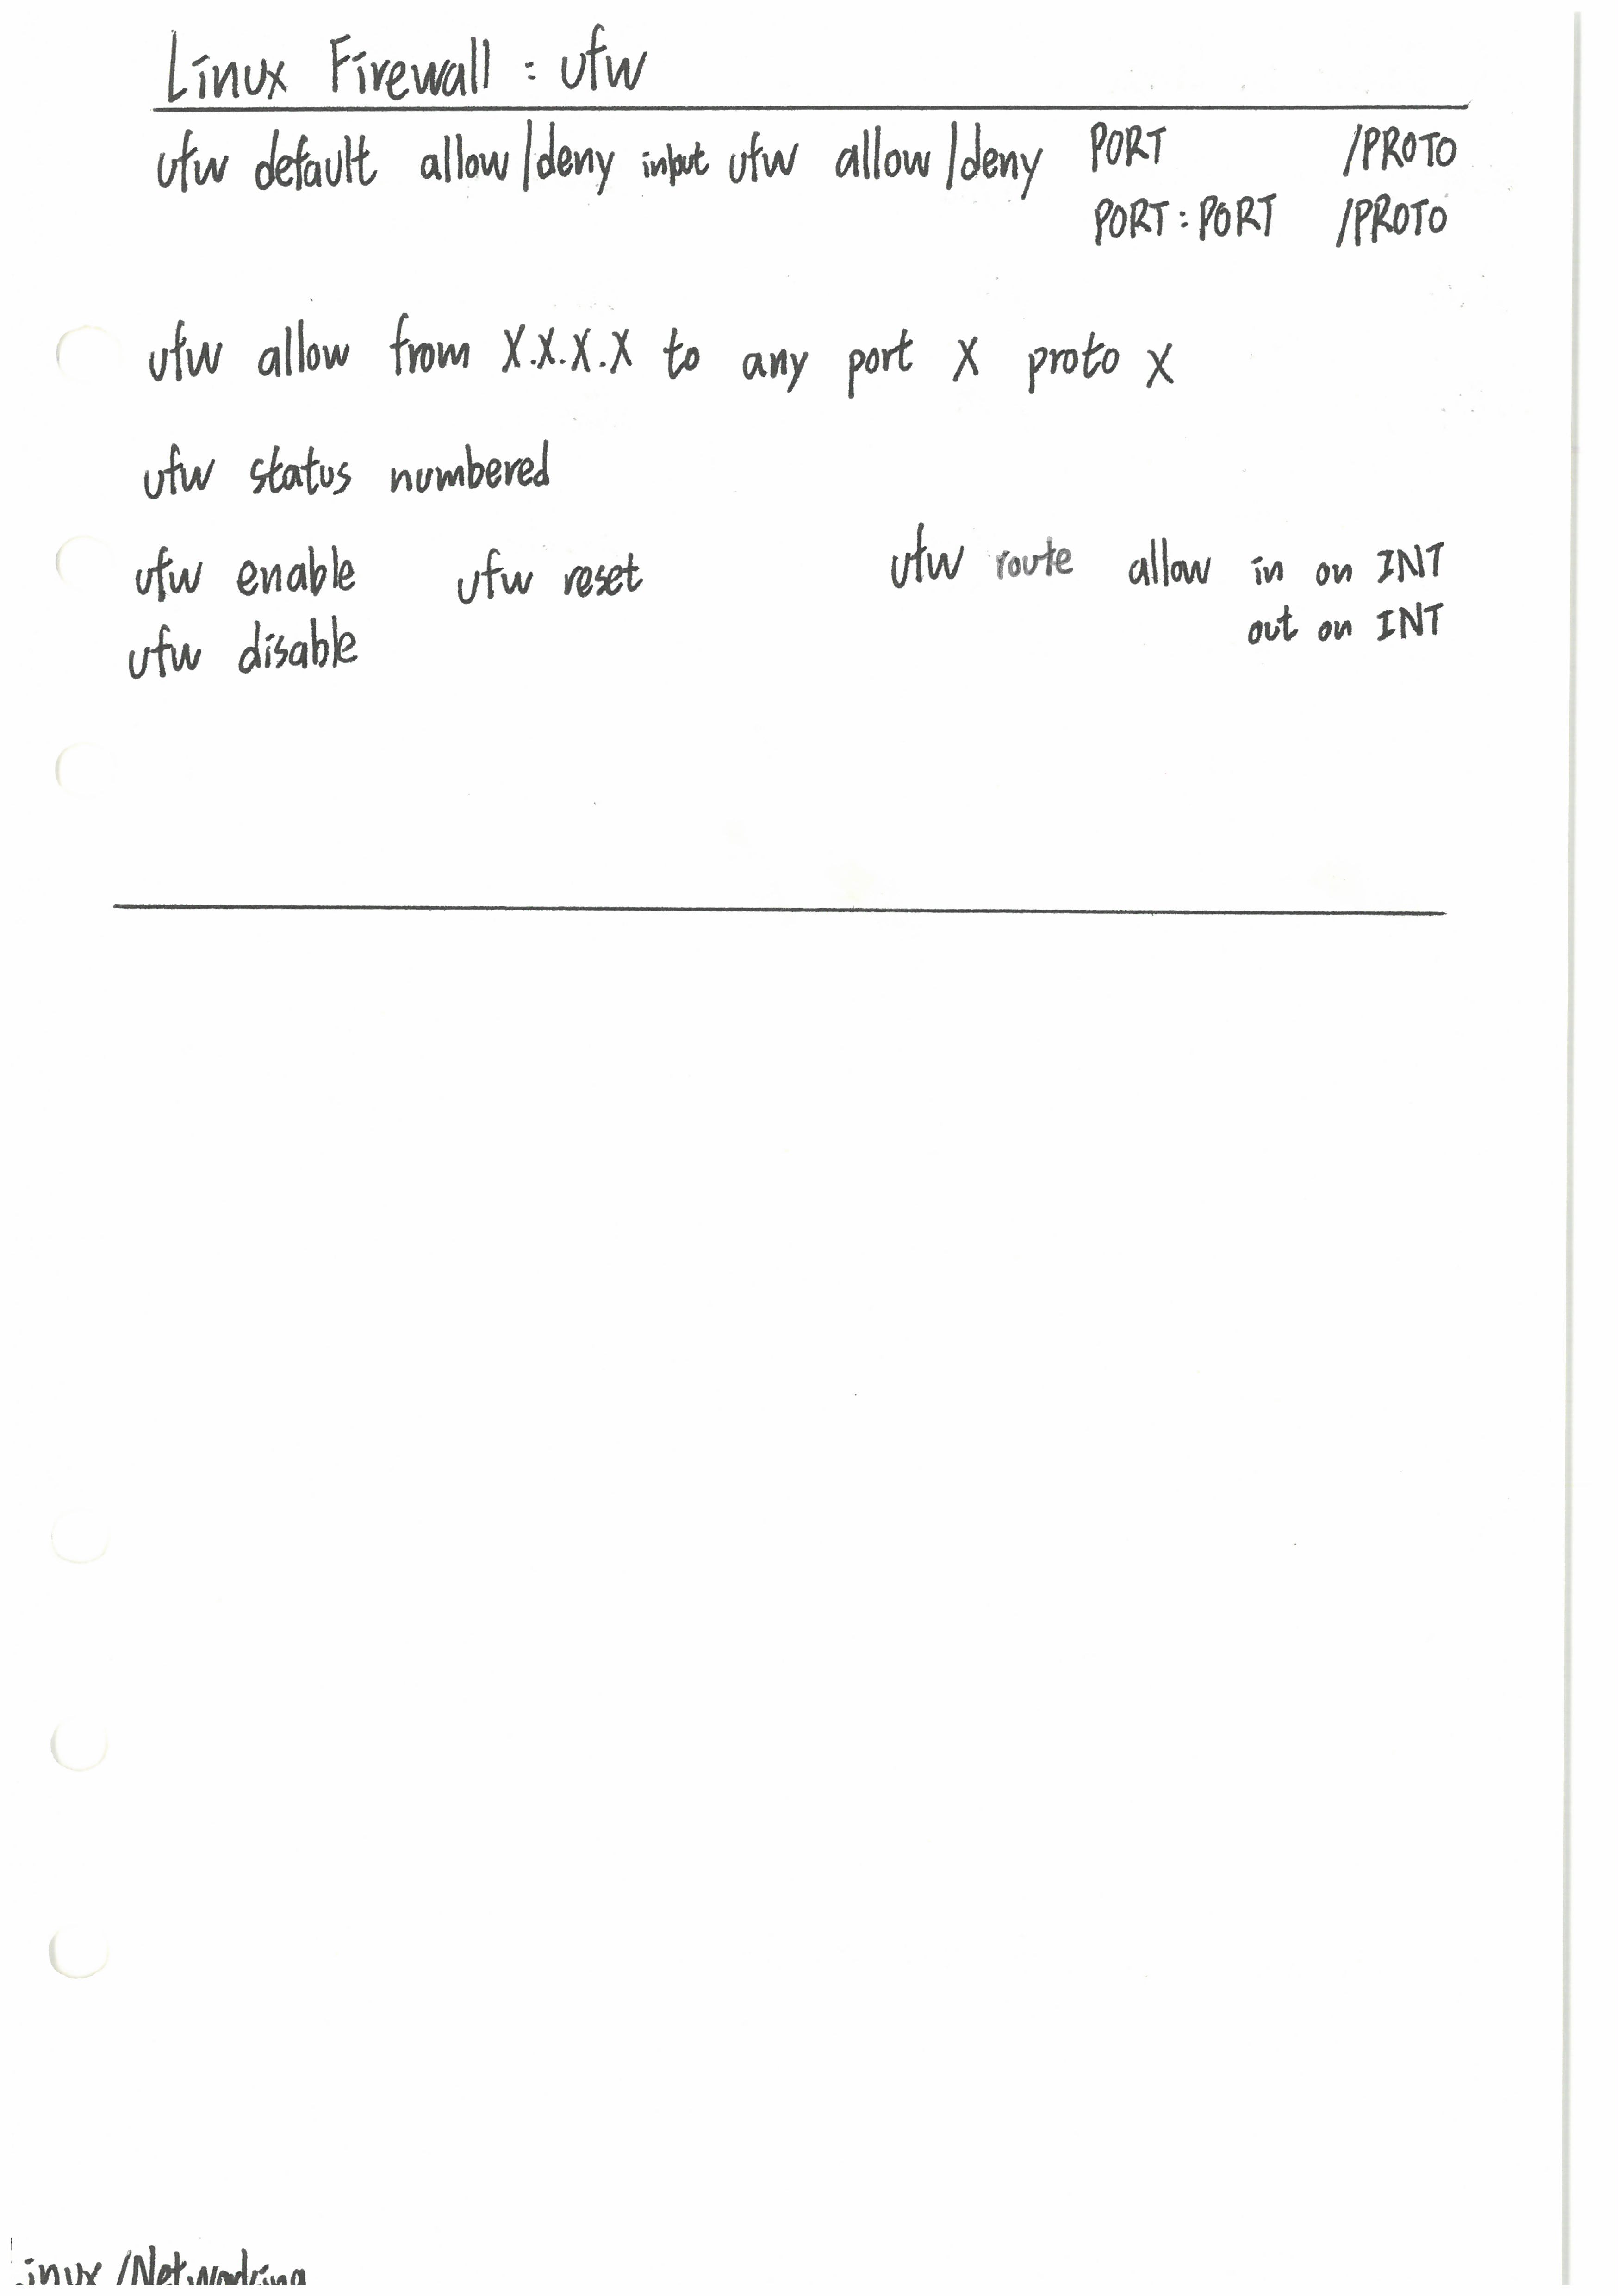 Linux Firewall : ufw
ufw default allow/deny input ufw allow/deny PORT /PROTO
PORT:PORT /PROTO
ufw allow from X.X.X.X to any port X proto X
ufw status numbered
ufw enable ufw reset ufw route allow in on INT
out on INT
ufw disable
Linux/Networking